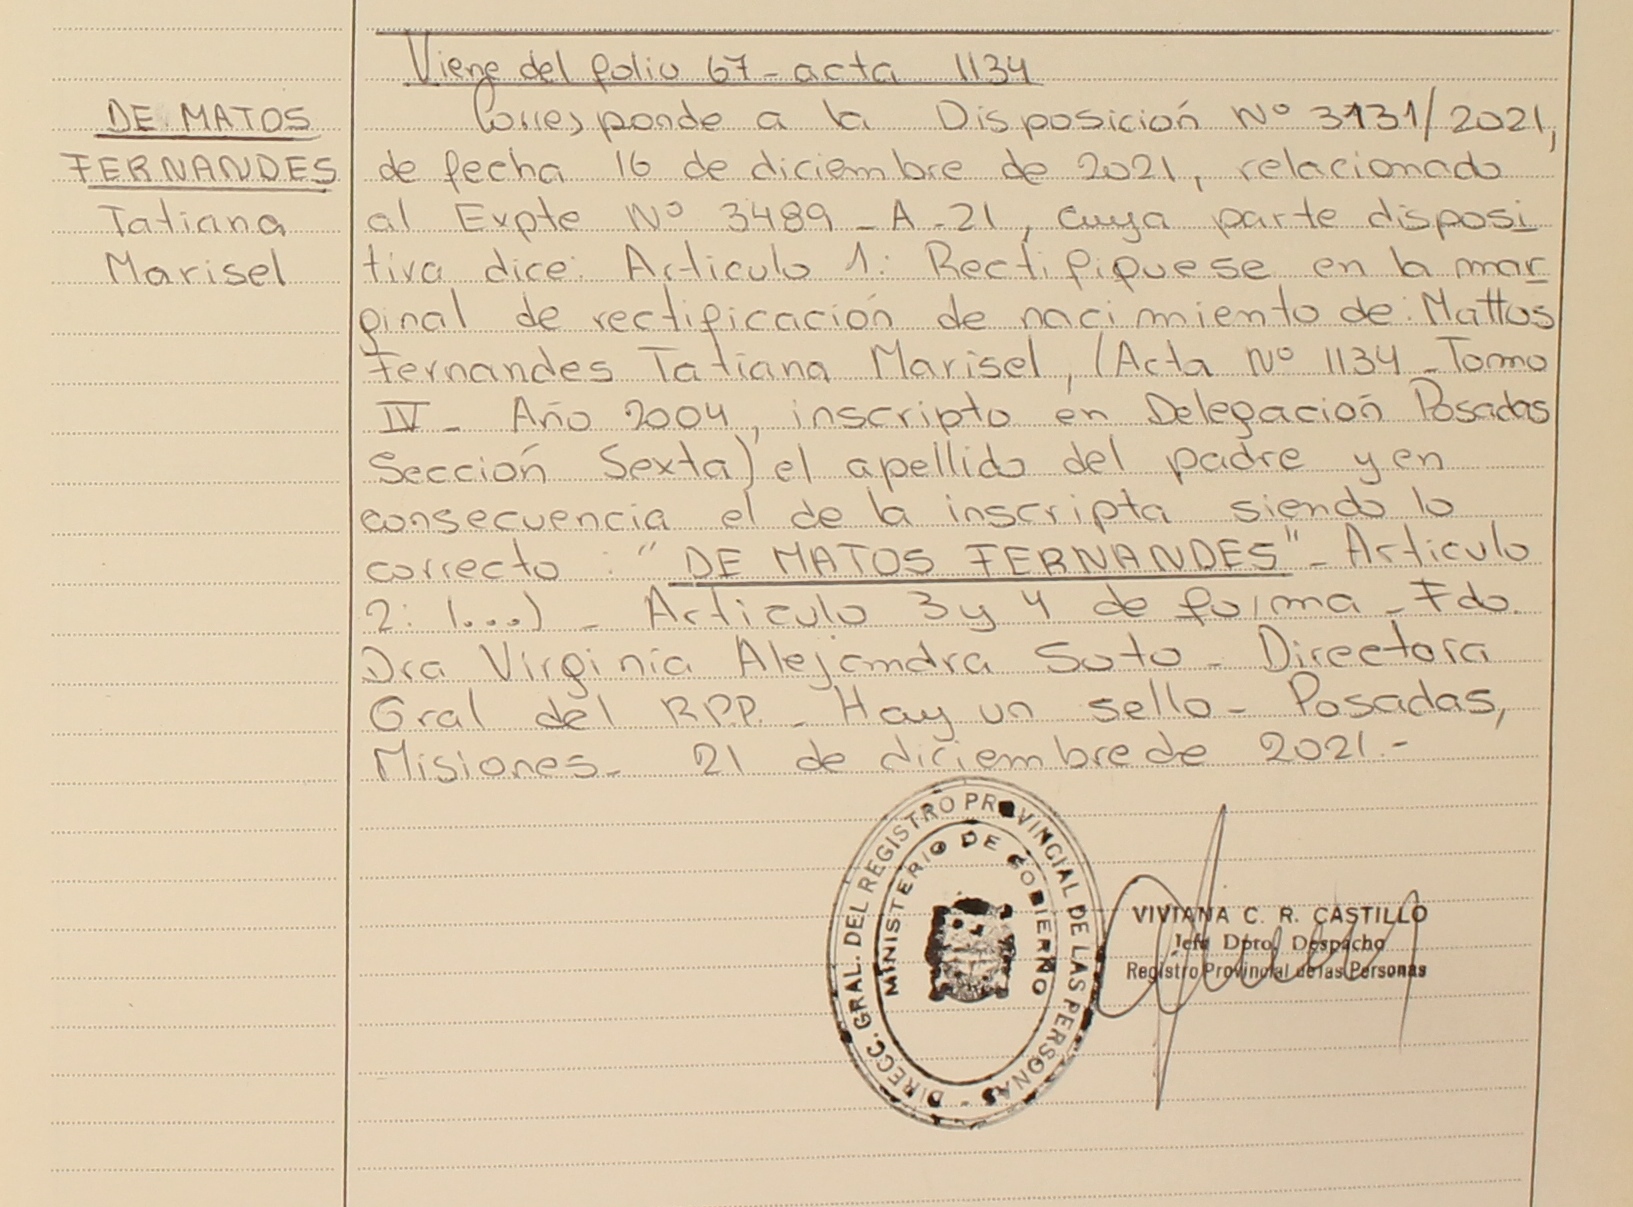 Viene del folio 67 - acta 1134
DE MATOS
FERNANDES
Tatiana
Marisel
Corresponde a la Disposición Nº 3131/2021,
de fecha 16 de diciembre de 2021, relacionado
al Expte Nº 3489 - A - 21, cuya parte disposi
tiva dice: Articulo 1: Rectifiquese en la mar
ginal de rectificación de nacimiento de: Mattos
Fernandes Tatiana Marisel, (Acta Nº 1134 - Tomo
IV - Año 2004, inscripto en Delegación Posadas
Sección Sexta) el apellido del padre y en
consecuencia el de la inscripta siendo lo
correcto : "DE MATOS FERNANDES" - Articulo
2: (...) - Articulo 3 y 4 de forma - Fdo.
Dra Virginia Alejandra Soto - Directora
Gral del RPP. - Hay un sello - Posadas,
Misiones - 21 de diciembre de 2021.-
DIRECC. GRAL. DEL REGISTRO PROVINCIAL DE LAS PERSONAS -
MINISTERIO DE GOBIERNO
VIVIANA C. R. CASTILLO
Jefe Dpto. Despacho
Registro Provincial de las Personas